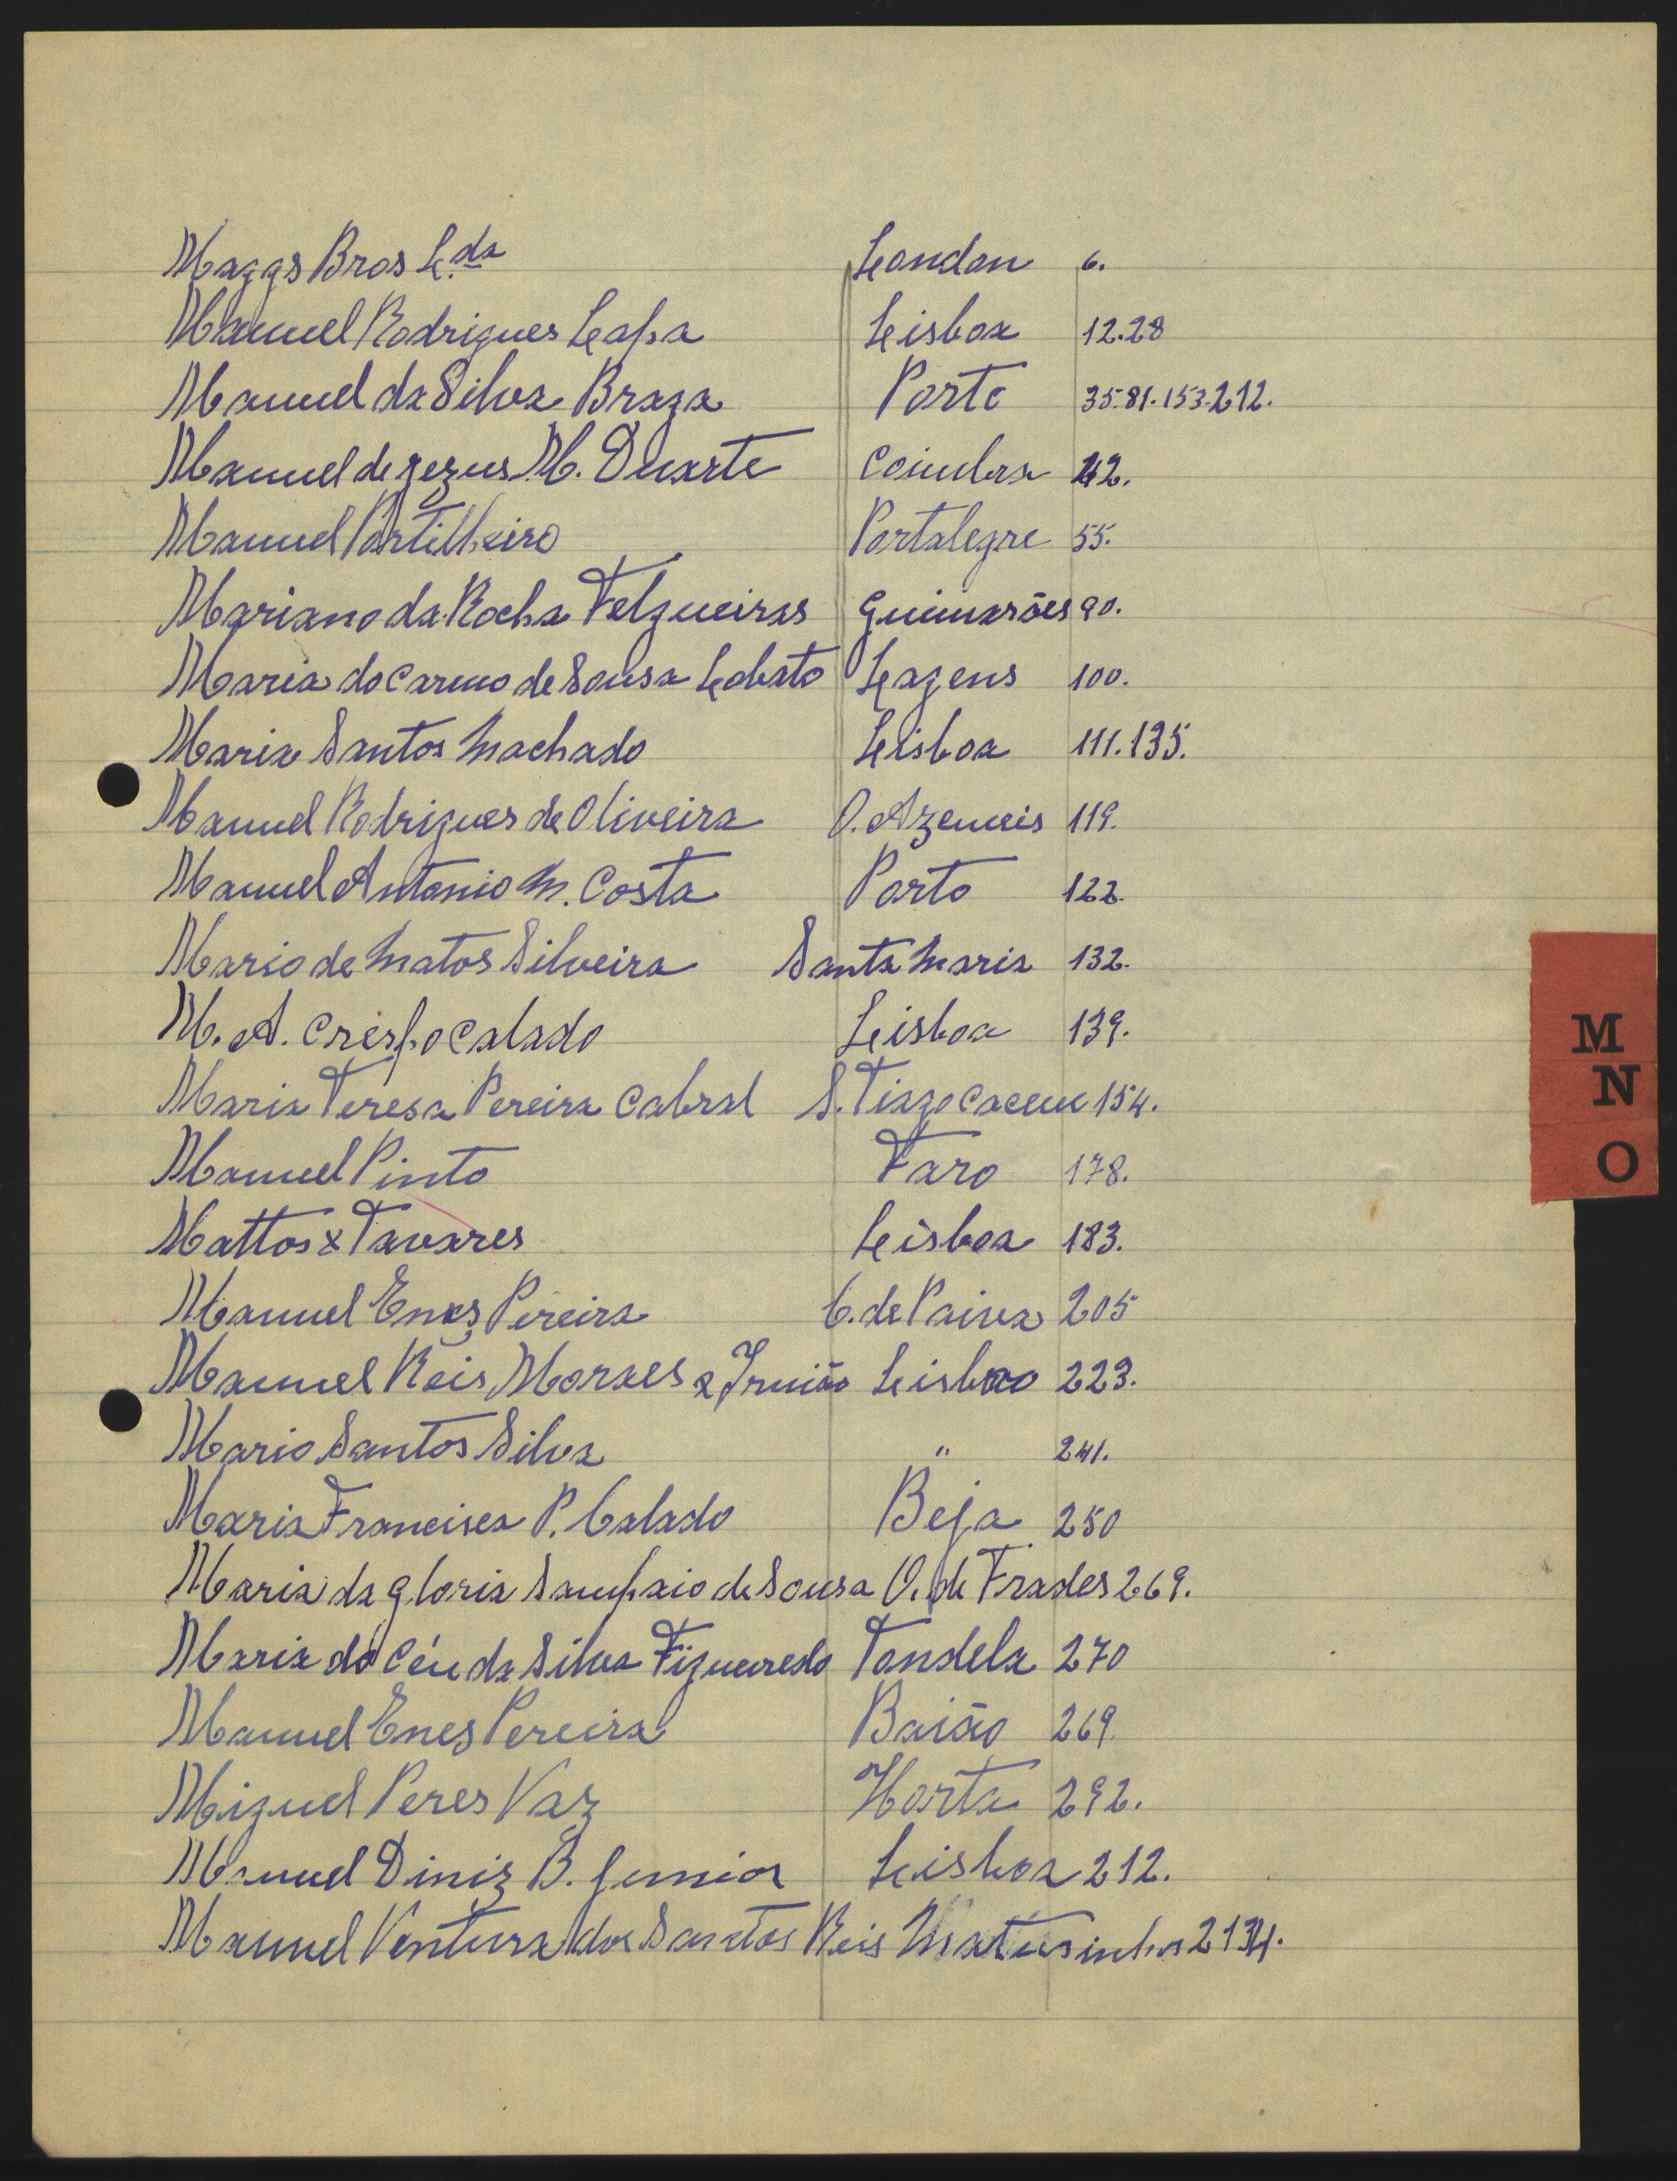 Maggs Bros L.da London 6.
Manuel Rodrigues Lapa Lisboa 12.28
Manuel da Silva Braga Porto 35.81.153.212.
Manuel de Jezus M. Duarte Coimbra 42.
Manuel Portilheiro Portalegre 55.
Mariano da Rocha Felgueiras Guimarães 90.
Maria do Carmo de Sousa Lobato Lagens 100.
Maria Santos Machado Lisboa 111.135.
Manuel Rodrigues de Oliveira O. Azemeis 119.
Manuel Antonio M. Costa Porto 122.
Mario de Matos Silveira Santa Maria 132.
M. A. Crespo Calado Lisboa 139.
Maria Teresa Pereira Cabral S. Tiago Cacem 154.
Manuel Pinto Faro 178.
Mattos & Tavares Lisboa 183.
Manuel Enes Pereira C. de Paiva 205
Manuel Reis Moraes & Irmião Lisboa 223.
Mario Santos Silva " 241.
Maria Francisca P. Calado Beja 250
Maria da Gloria Sampaio de Sousa O. de Frades 269.
Maria do Céu da Silva Figueiredo Tondela 270
Manuel Enes Pereira Baião 269.
Miguel Peres Vaz Horta 292.
Manuel Diniz B. Junior Lisboa 212.
Manuel Ventura dos Santos Reis Matusinhos
M
N
O